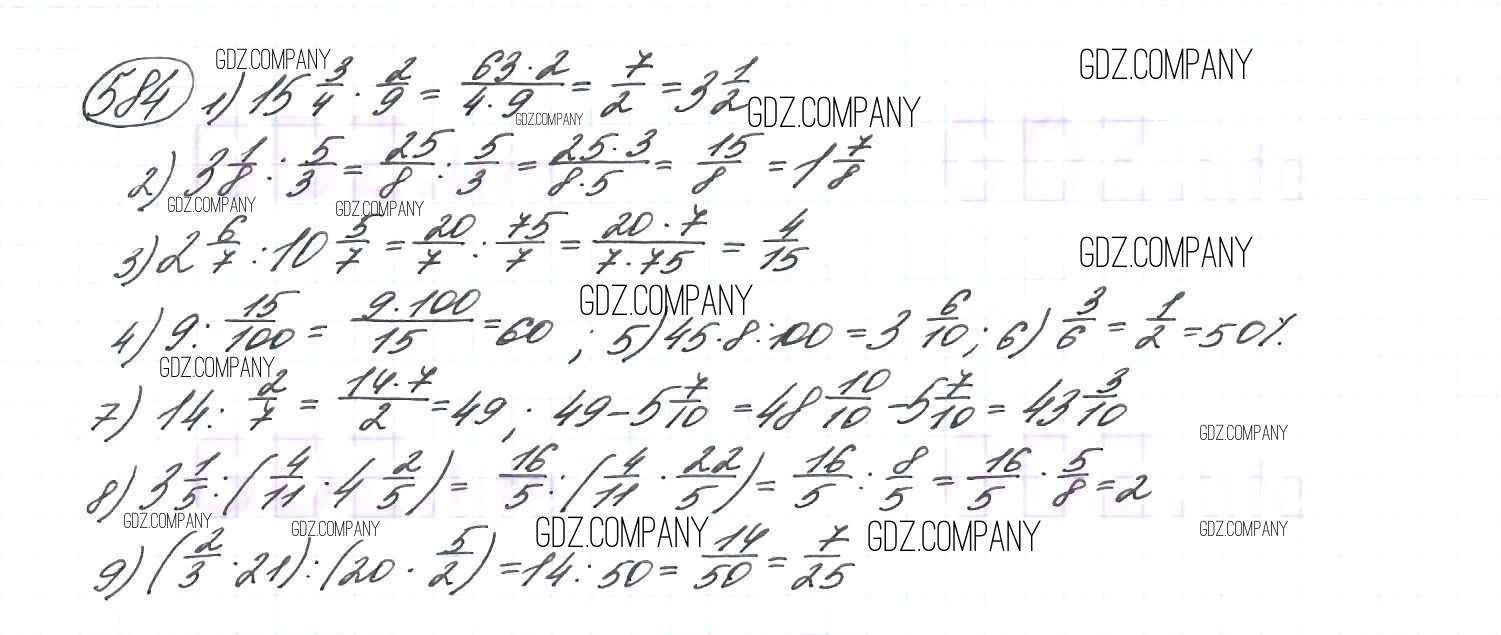 GDZ.COMPANY GDZ.COMPANY
584 1) 15 3/4 · 2/9 = 63·2/4·9 = 7/2 = 3 1/2
GDZ.COMPANY GDZ.COMPANY
2) 3 1/8 : 5/3 = 25/8 : 5/3 = 25·3/8·5 = 15/8 = 1 7/8
GDZ.COMPANY GDZ.COMPANY
3) 2 6/7 : 10 5/7 = 20/7 : 75/7 = 20·7/7·75 = 4/15
GDZ.COMPANY
GDZ.COMPANY
4) 9 : 15/100 = 9·100/15 = 60 ; 5) 45·8:100 = 3 6/10 ; 6) 3/6 = 1/2 = 50%.
GDZ.COMPANY
7) 14 : 2/7 = 14·7/2 = 49 ; 49 - 5 7/10 = 48 10/10 - 5 7/10 = 43 3/10
GDZ.COMPANY
8) 3 1/5 : (4/11 · 4 2/5) = 16/5 : (4/11 · 22/5) = 16/5 : 8/5 = 16/5 · 5/8 = 2
GDZ.COMPANY GDZ.COMPANY GDZ.COMPANY GDZ.COMPANY GDZ.COMPANY
9) (2/3 · 21) : (20 · 5/2) = 14 : 50 = 14/50 = 7/25